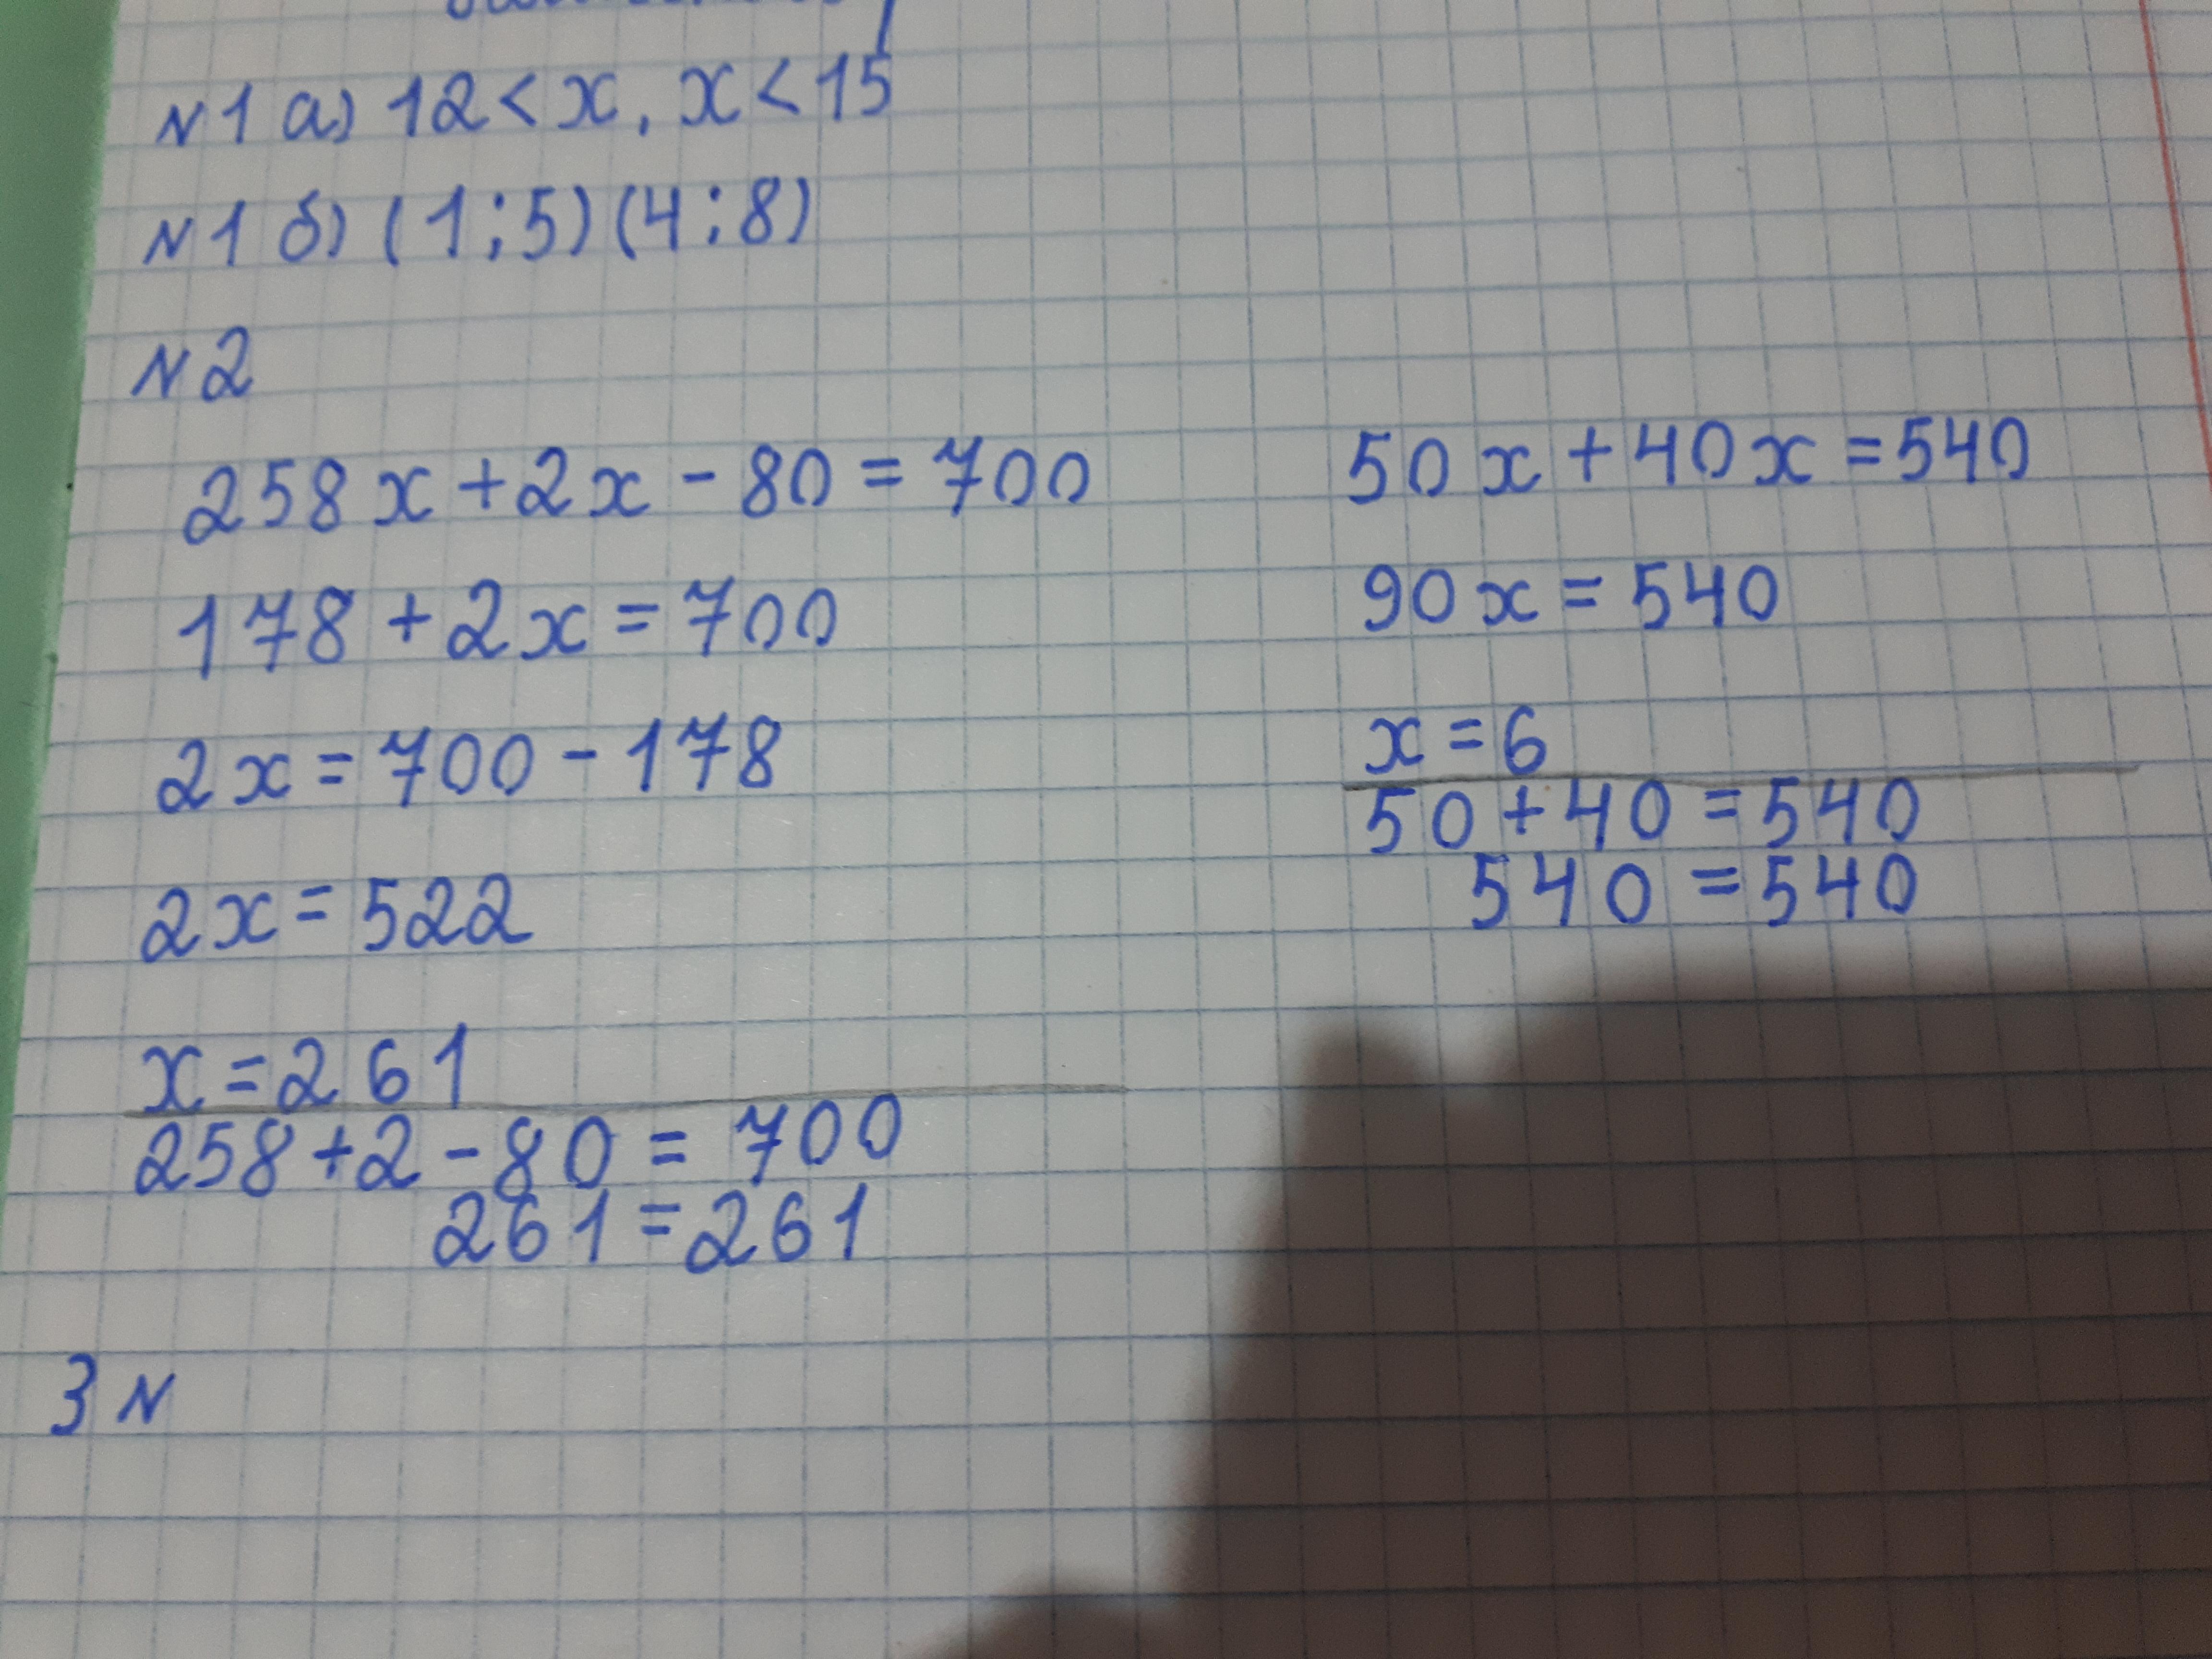 N1 а) 12 < x, x < 15
N1 б) (1;5)(4;8)
N2
258x + 2x - 80 = 700
178 + 2x = 700
2x = 700 - 178
2x = 522
x = 261
258 + 2 - 80 = 700
261 = 261
50x + 40x = 540
90x = 540
x = 6
50 + 40 = 540
540 = 540
3 N